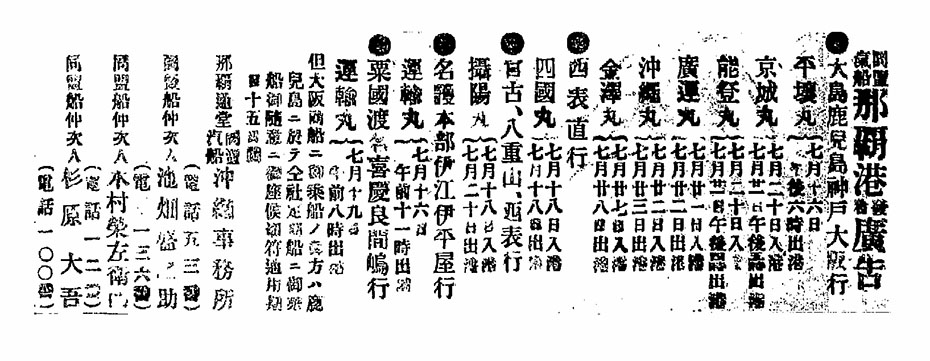 同盟汽船那覇港出發廣告
●大島鹿兒島神戸大阪行
平壤丸 七月十六日午後六時出港
京城丸 七月二十日入港 七月廿一日午後出港
能登丸 七月二十日入 七月廿二日午後出港
廣運丸 七月廿一日入港 七月廿二日出港
沖繩丸 七月二二日入港 七月廿三日出港
金澤丸 七月廿七日入港 七月廿八日出港
●西表直行
四國丸 七月十八日入港 七月十八日出港
●宮古、八重山、西表行
攝陽丸 七月十八日入港 七月二十日出港
●名護本部伊江伊平屋行
運輸丸 七月十六日午前十一時出港
●粟國渡名喜慶良間嶋行
運輸丸 七月十九日午前八時出港
但大阪商船ニ御乘船ノ方ハ鹿
兒島ニ於テ全社定期船ニ御乘
船御隨意ニ候切符通用期
日十五日間
那覇通堂 同盟汽船 沖繩事務所
(電話五三番)
同盟船仲次人 池畑盛之助
(電一三六番)
同盟船仲次人 木村榮左衛門
(電話一二番)
同盟船仲次人 杉原大吾
(電話一〇〇番)